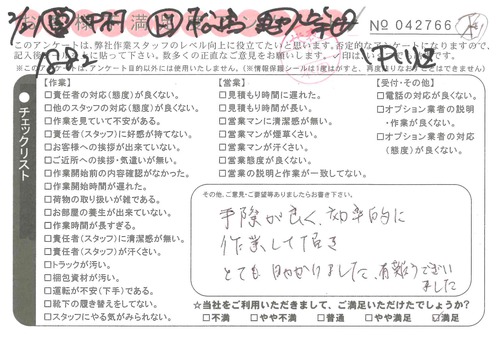 № 042766
このアンケートは、弊社作業スタッフのレベル向上に役立てたいと思います。否定的なアンケートになりますので、
※このアンケートは、アンケート目的以外には使用いたしません。(※情報保護シールは1度はがすと、再度貼りなおすことはできません)
チェックリスト
【作業】
□責任者の対応(態度)が良くない。
□他のスタッフの対応(態度)が良くない。
□作業を見ていて不安がある。
□責任者(スタッフ)に好感が持てない。
□お客様への挨拶が出来ていない。
□ご近所への挨拶・気遣いが無い。
□作業開始前の内容確認がなかった。
□作業開始時間が遅れた。
□荷物の取り扱いが雑である。
□お部屋の養生が出来ていない。
□作業時間が長すぎる。
□責任者(スタッフ)に清潔感が無い。
□責任者(スタッフ)が汗くさい。
□トラックが汚い。
□梱包資材が汚い。
□運転が不安(下手)である。
□靴下の履き替えをしてない。
□スタッフにやる気がみられない。
【営業】
□見積もり時間に遅れた。
□見積もり時間が長い。
□営業マンに清潔感が無い。
□営業マンが煙草くさい。
□営業マンが汗くさい。
□営業態度が良くない。
□営業の説明と作業が一致してない。
【受付・その他】
□電話の対応が良くない。
□オプション業者の説明
・作業が良くない。
□オプション業者の対応
(態度)が良くない。
その他、ご意見・ご要望等ありましたらお書き下さい。
手際が良く、効率的に
作業して頂き
とても助かりました。有難うござい
ました
☆当社をご利用いただきまして、ご満足いただけたでしょうか?
□不満 □やや不満 □普通 □やや満足 ☑満足